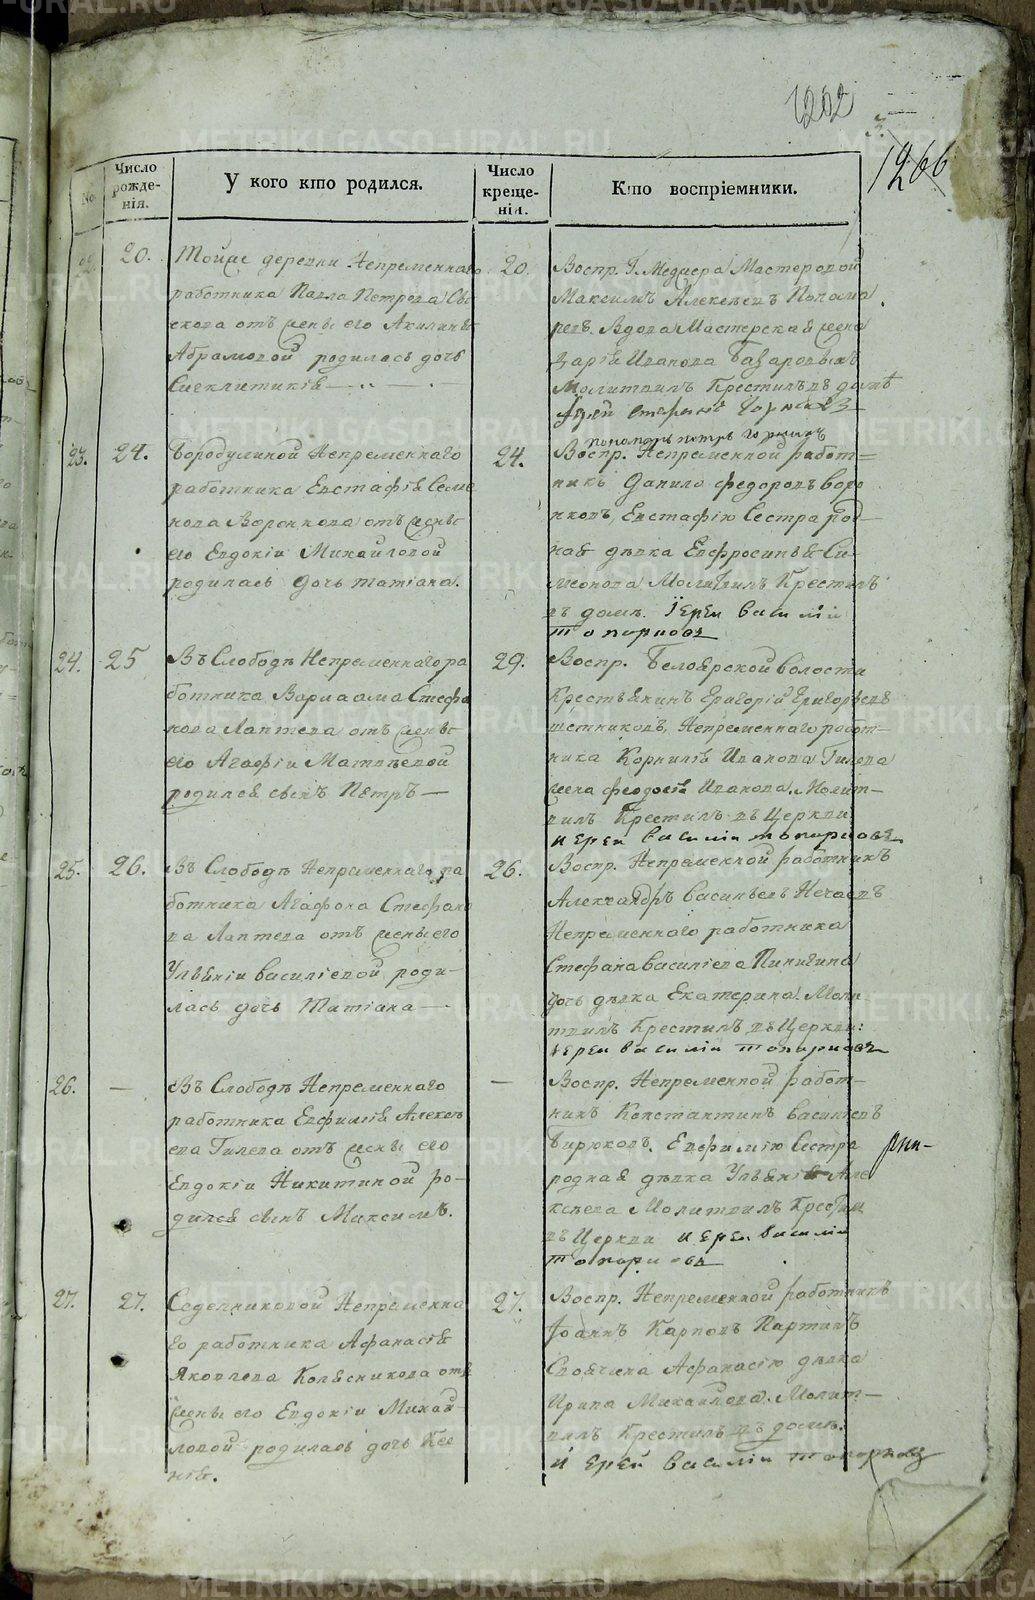 METRIKI.GASO-URAL.RU
1202
1266
№
Число рожденія.
У кого кто родился.
Число крещенія.
Кто воспріемники.
22.
20.
Тойже деревни Непременнаго
работника Павла Петрова
отъ жены его Акилины
Абрамовой родилась дочь
Сигклитикія
20.
Воспр. Мастеровой
Максимъ Алексѣевъ Понома
ревъ. Вдова Мастерская жена
Дарія Иванова
Молитвилъ Крестилъ въ домѣ
23.
24.
Бородулиной Непременнаго
работника Евстафія Семе
нова Воронкова отъ жены
его Евдокіи Михайловой
родилась дочь Татіана.
24.
Воспр. Непременной работ=
никъ Данило Федоровъ Воро
нковъ, Евстафію Сестра род
ная дѣвка Евфросинья Си
меонова Молитвилъ Крестилъ
въ домѣ. Іерей Василій
Топорковъ
24.
25
Въ Слободѣ Непременнаго ра
ботника Варлаама Стефа
нова Лаптева отъ жены
его Агафіи Матвѣевой
родился сынъ Петръ
29.
Воспр. Белоярской волости
Крестьянинъ Григорій Григорьевъ
Непременнаго работ—
ника Корнилія Иванова Гилева
жена Феодосія Иванова. Молит—
вилъ Крестилъ въ Церкви
Иерей Василій Топорковъ
25.
26.
Въ Слободѣ Непременнаго ра
ботника Агафона Стефано
ва Лаптева отъ жены его
Ульяніи Василіевой роди—
лась дочь Татіана
26.
Воспр. Непременной работникъ
Александръ Васильевъ Нечаевъ
Непременнаго работника
Стефана Василіева Пинигина
дочь дѣвка Екатерина. Моли
твилъ Крестилъ въ Церкви:
Іерей Василій Топорковъ
26.
—
Въ Слободѣ Непременнаго
работника Евфимія Алексѣ
ева Гилева отъ жены его
Евдокіи Никитиной ро—
дился сынъ Максимъ.
—
Воспр. Непременной работ—
никъ Константинъ Васильевъ
Бирюковъ. Евфимію Сестра
родная дѣвка Ульянія Але
ксѣева Молитвилъ Крестил
въ Церкви Иерей Василій
Топорковъ
27.
27.
Седельниковой Непременна
го работника Афанасія
Яковлева Колесникова отъ
жены его Евдокіи Михай—
ловой родилась дочь Ксе
нія.
27.
Воспр. Непременной работникъ
Іоаннъ Карповъ Партинъ
Своячена Афанасію дѣвка
Ирина Михайлова. Молит—
вилъ Крестилъ въ домѣ.
Иерей Василій Топорковъ